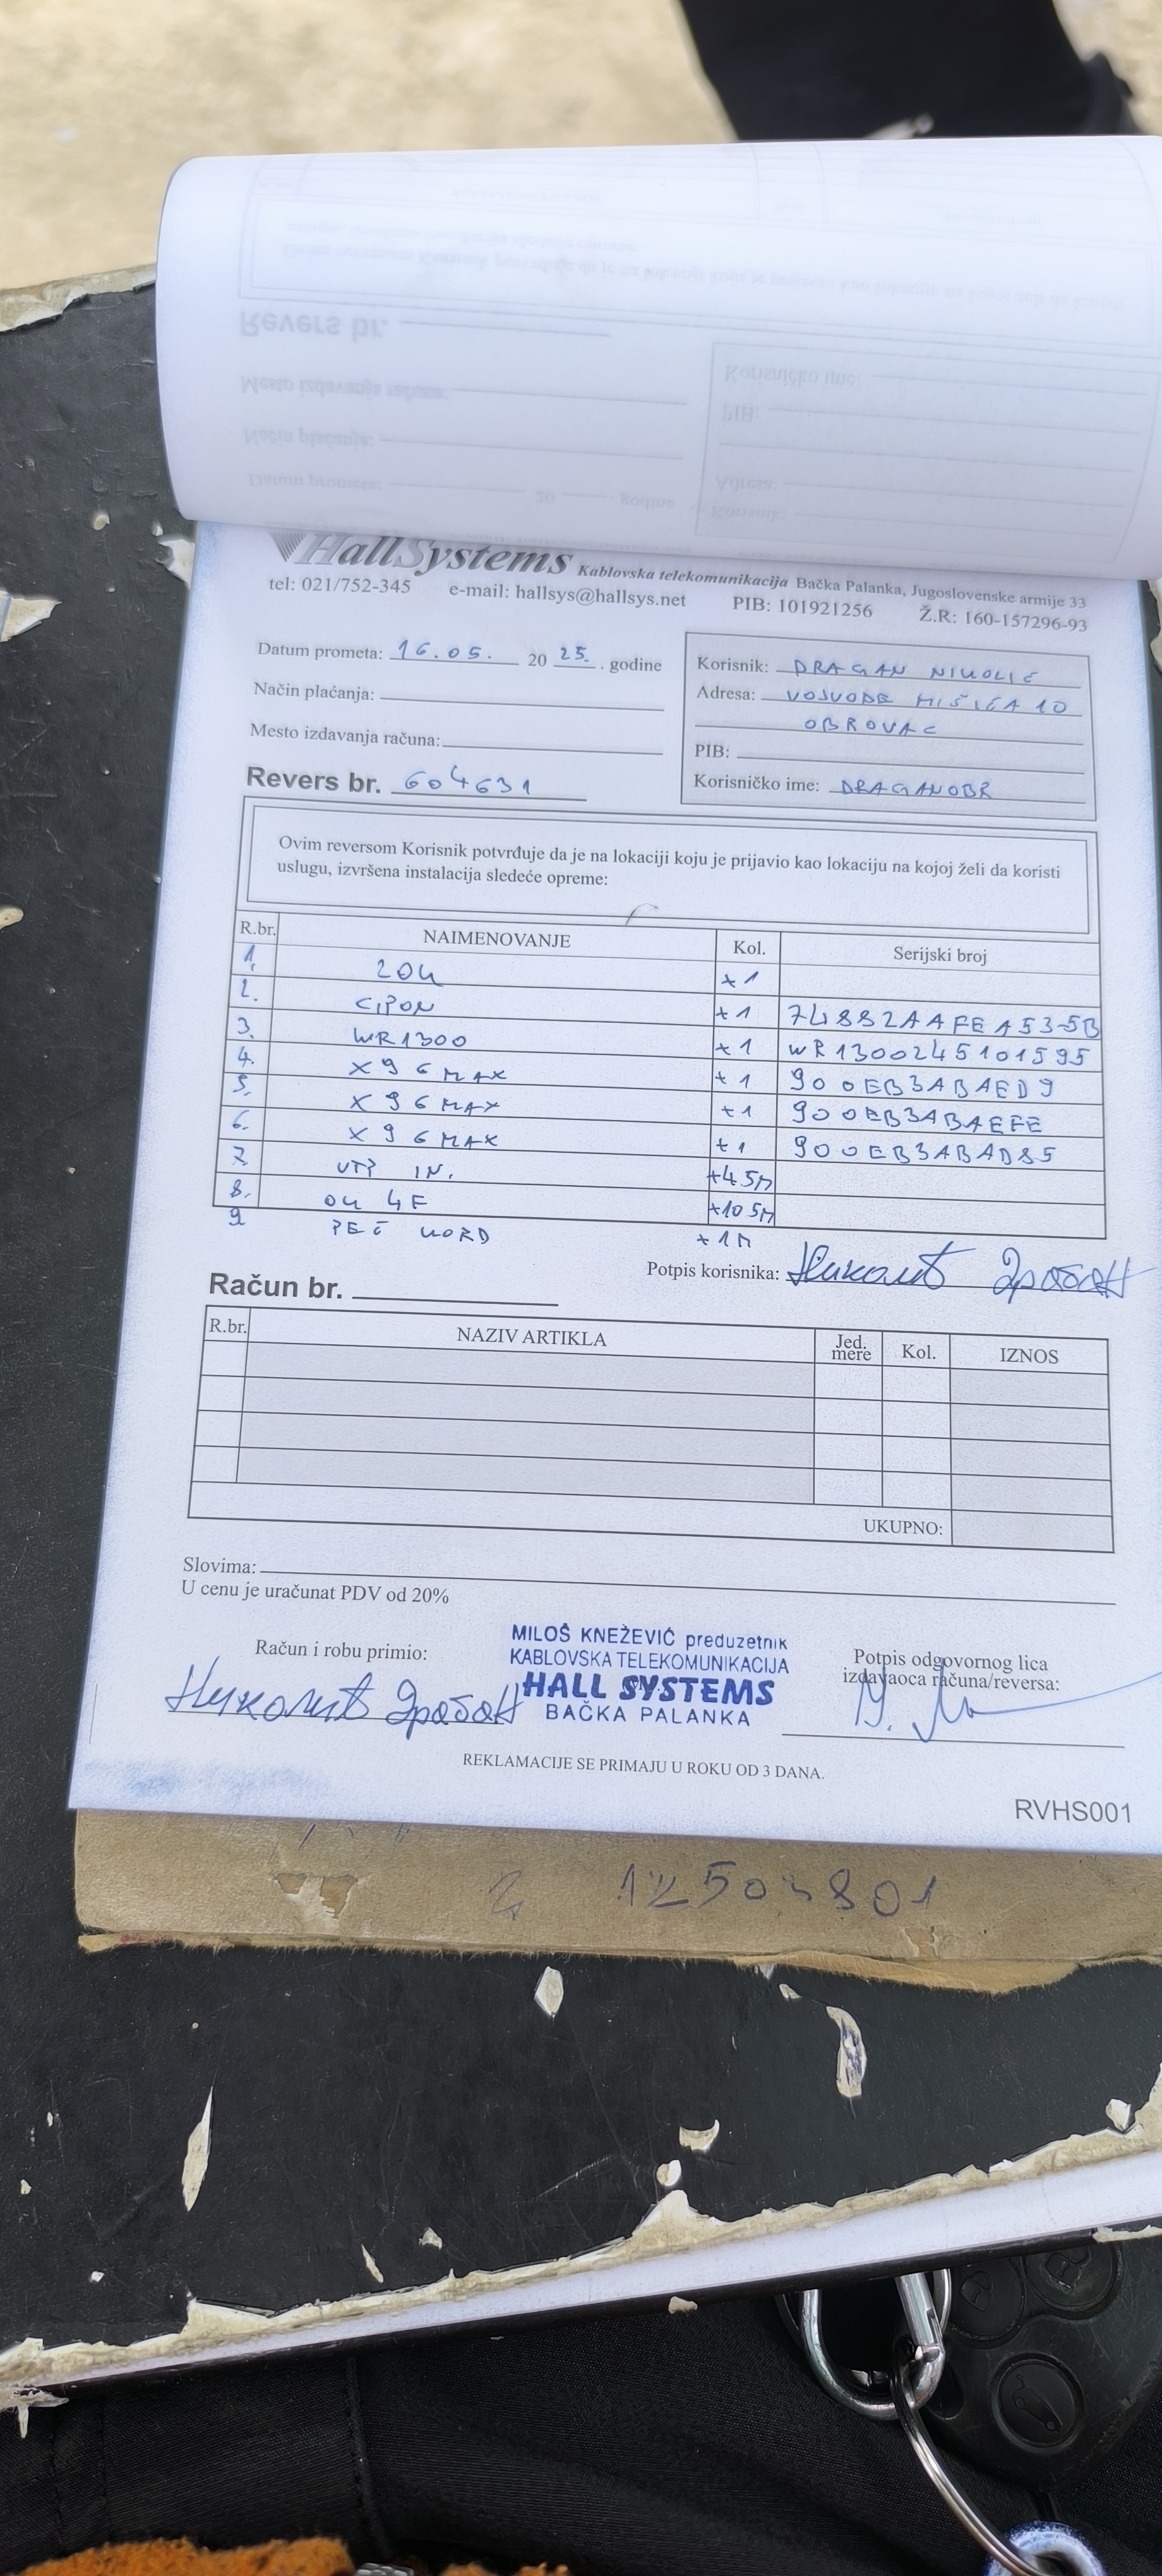 HallSystems Kablovska telekomunikacija Bačka Palanka, Jugoslovenske armije 33
tel: 021/752-345 e-mail: hallsys@hallsys.net PIB: 101921256 Ž.R: 160-157296-93
Datum prometa: 16.05. 20 25. godine
Način plaćanja:
Mesto izdavanja računa:
Revers br. 604631
Korisnik: DRAGAN NIKOLIĆ
Adresa: VOJVODE MIŠIĆA 10
OBROVAC
PIB:
Korisničko ime: DRAGANOBR
Ovim reversom Korisnik potvrđuje da je na lokaciji koju je prijavio kao lokaciju na kojoj želi da koristi
uslugu, izvršena instalacija sledeće opreme:
R.br. NAIMENOVANJE Kol. Serijski broj
1. ZOK +1
2. GPON +1 74882AAFEA53-5B
3. WR1300 +1 WR1300245101595
4. X96MAX +1 900EB3ABAED9
5. X96MAX +1 900EB3ABAEFE
6. X96MAX +1 900EB3ABAD85
7. UTP IN. +45M
8. OK 4F +105M
9 PEČ KORD +1M
Potpis korisnika: Николић Драган
Račun br.
R.br. NAZIV ARTIKLA Jed. mere Kol. IZNOS
UKUPNO:
Slovima:
U cenu je uračunat PDV od 20%
Račun i robu primio:
Николић Драган
MILOŠ KNEŽEVIĆ preduzetnik
KABLOVSKA TELEKOMUNIKACIJA
HALL SYSTEMS
BAČKA PALANKA
Potpis odgovornog lica
izdavaoca računa/reversa:
REKLAMACIJE SE PRIMAJU U ROKU OD 3 DANA.
RVHS001